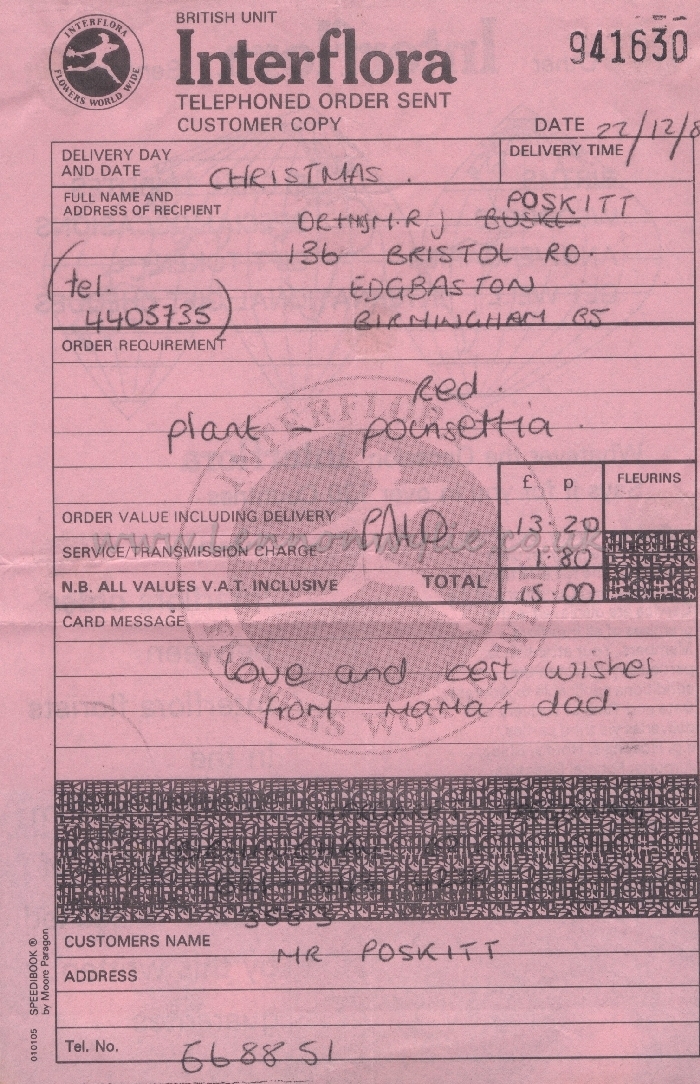 BRITISH UNIT
INTERFLORA
FLOWERS WORLD WIDE
Interflora
941630
TELEPHONED ORDER SENT
CUSTOMER COPY
DATE 22/12/8
DELIVERY DAY AND DATE CHRISTMAS.
DELIVERY TIME
FULL NAME AND ADDRESS OF RECIPIENT
POSKITT
DR + MRS M. R J BUSKE
136 BRISTOL RD.
(tel. EDGBASTON
4405735) BIRMINGHAM B5
ORDER REQUIREMENT
Red.
plant - poinsettia.
£ p FLEURINS
ORDER VALUE INCLUDING DELIVERY PAID 13.20
SERVICE/TRANSMISSION CHARGE 1.80
N.B. ALL VALUES V.A.T. INCLUSIVE TOTAL 15.00
CARD MESSAGE
Love and best wishes
from Mama + dad.
CUSTOMERS NAME MR POSKITT
ADDRESS
Tel. No. 668851
010105 SPEEDIBOOK ®
by Moore Paragon